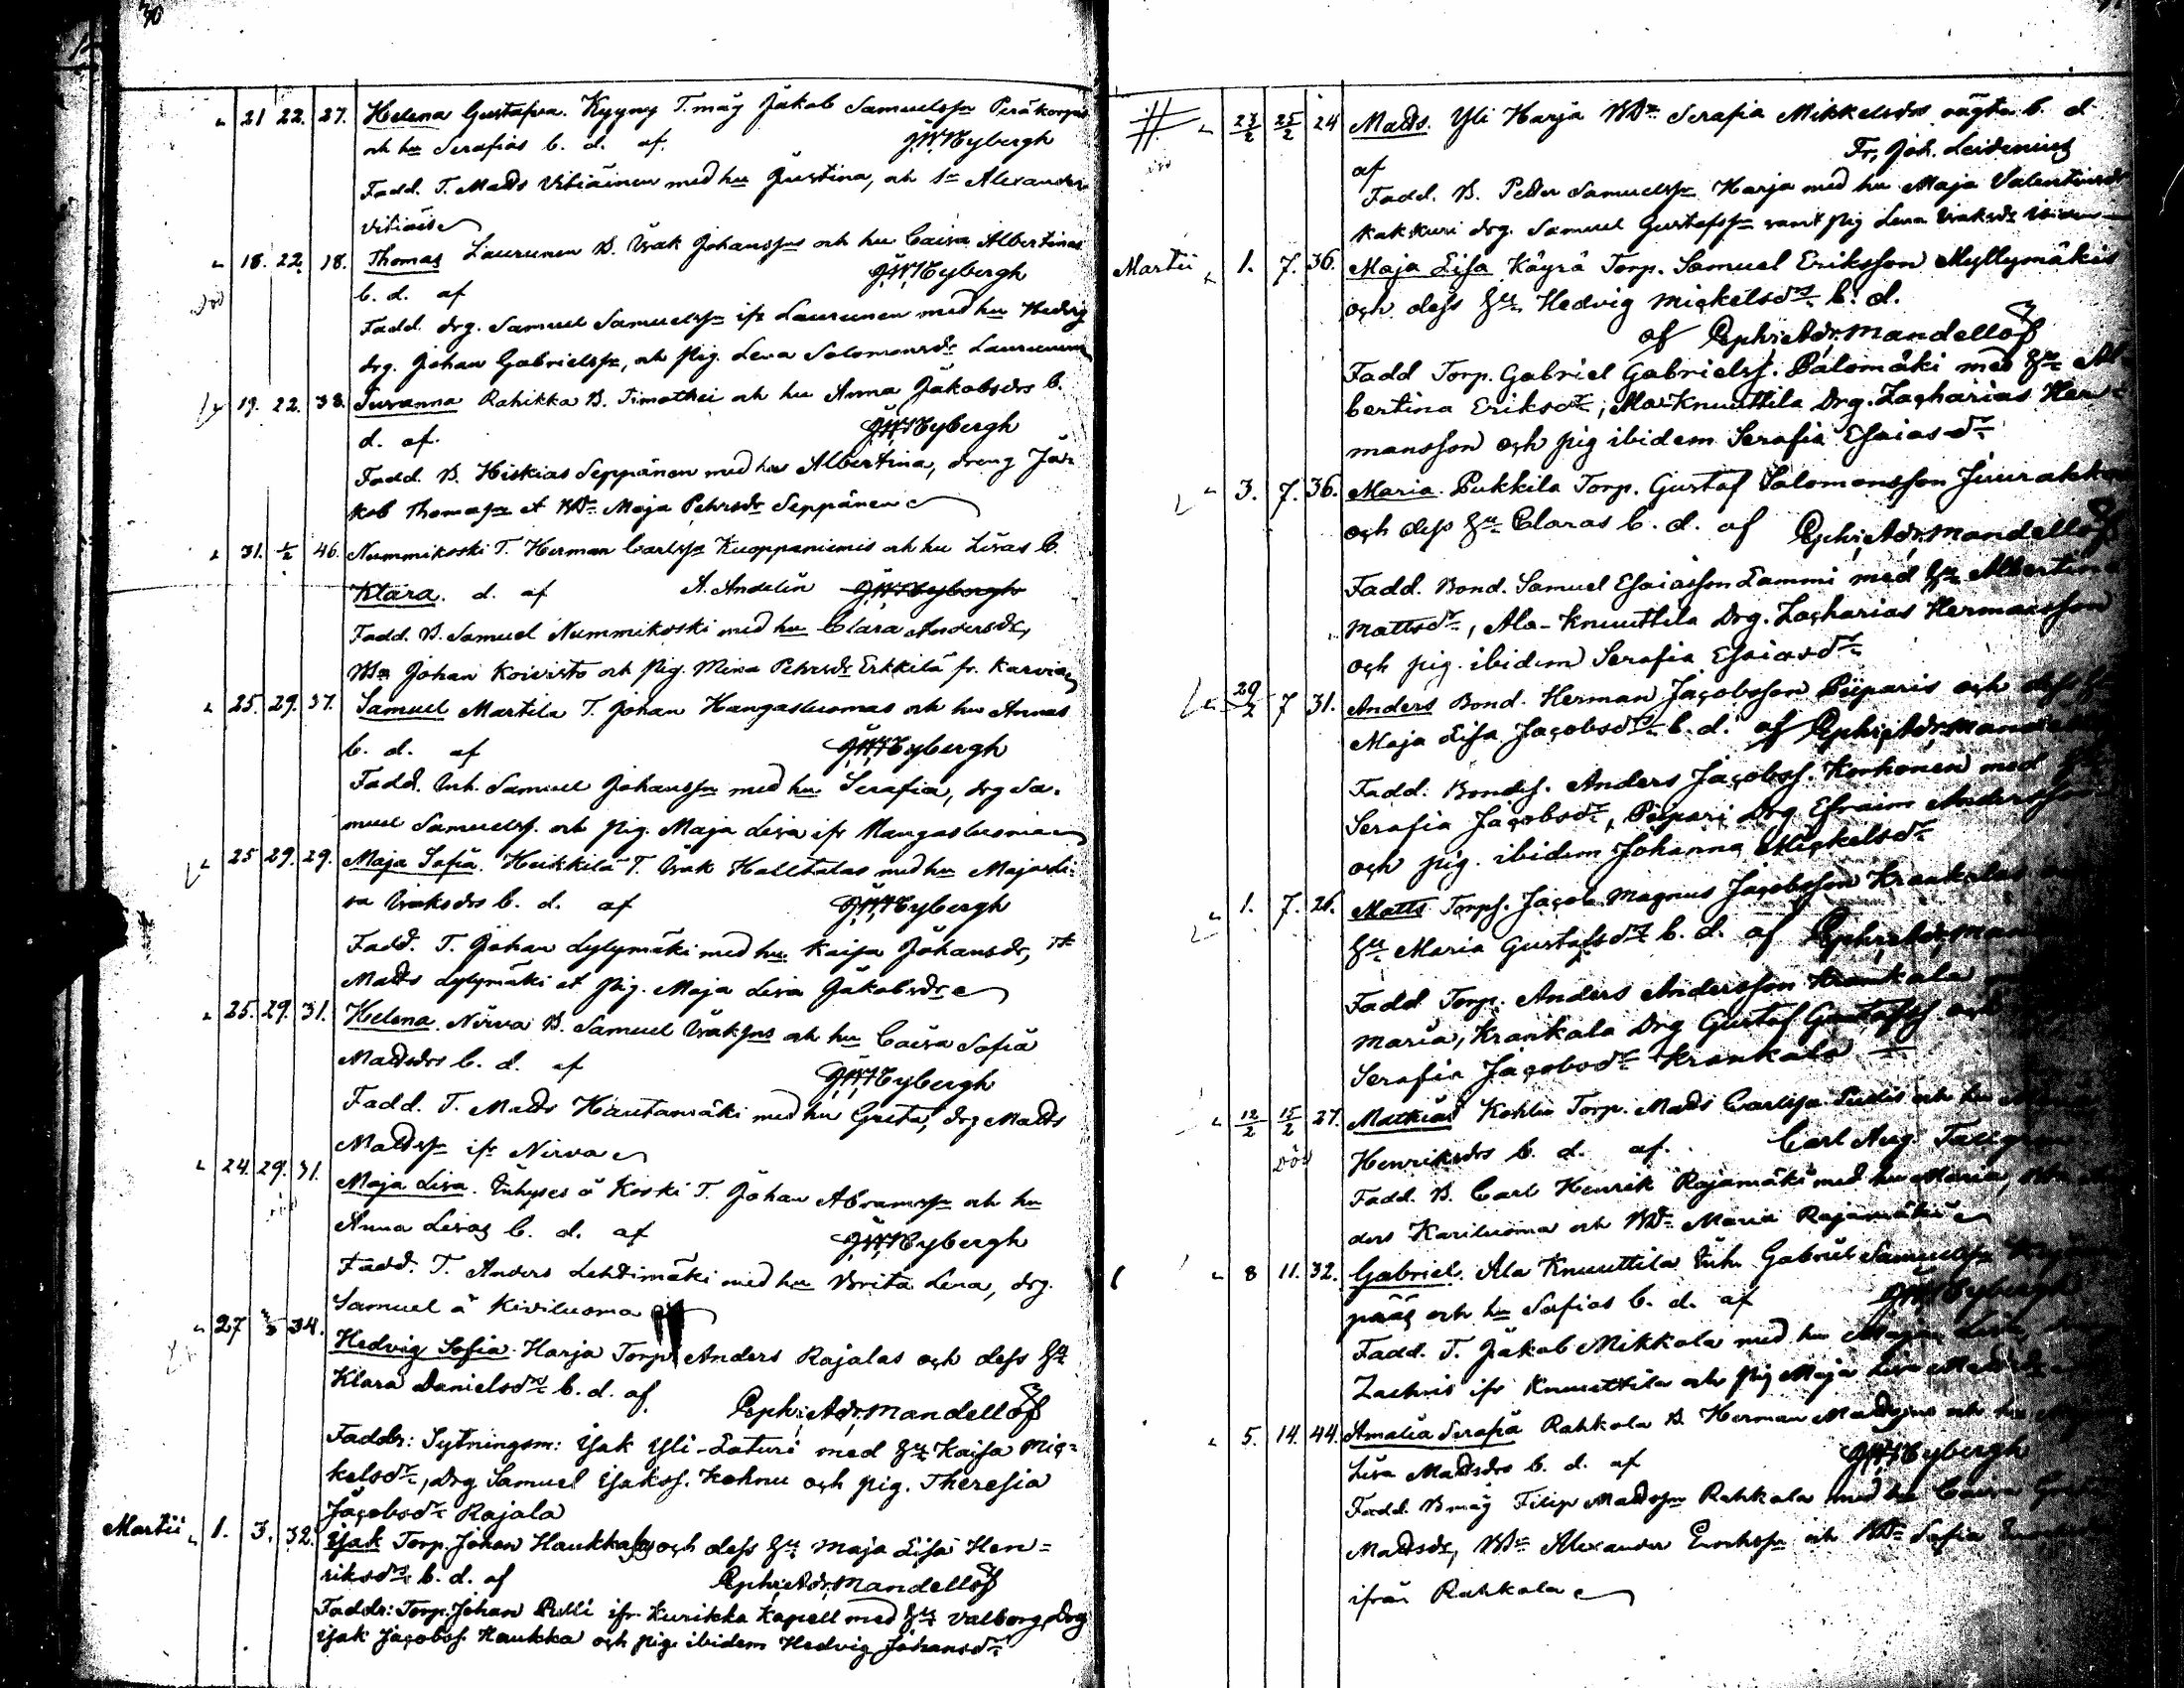 30
" 21 22. 27. Helena Gustafva. Kyyny T. måg Jakob Samuelssn Peräkorpis
och hu Serafias b. d. af J.W. Nybergh
Fadd. T. Matts Vitiäinen med hu Justina, och sn Alexander
Vitiäise
" 18. 22. 18. Thomas Laurunen B. Isak Johanssns och hu Caisa Albertinas
död
b. d. af J.W. Nybergh
Fadd. drg. Samuel Samuelssn ifr Laurunen med hu Hedvig
drg. Johan Gabrielssn, och pig. Lena Salomonsdr Laurunen
19. 22. 38. Susanna Rahikka B. Timothei och hu Anna Jakobsdrs b.
d. af. J.W. Nybergh
Fadd. B. Hiskias Seppänen med hu Albertina, dreng Ja-
kob Thomassn et BDr Maja Petersdr Seppänen
" 31. 1/2 46. Nummikoski T. Herman Carlssn Kuoppaniemis och hu Lisas b.
Klara. d. af A. Andelin J.W. Nybergh
Fadd. B. Samuel Nummikoski med hu Clara Andersdr,
Johan Koivisto och pig. Mina Petersdr Erkkilä fr. Karvia
" 25. 29. 37. Samuel Martila T. Johan Kangasluomas och hu Annas
b. d. af J.W. Nybergh
Fadd. Inh. Samuel Johanssn med hu Serafia, drg Sa-
muel Samuelss. och pig. Maja Lisa ifr Kangasluoma
" 25 29. 29. Maja Sofia. Heikkilä T. Isak Halltalas med hu Majasli-
sa Isaksdrs b. d. af J.W. Nybergh
Fadd. T. Johan Lylymäki med hu Kaisa Johansdr, T
Matts Lylymäki et pig. Maja Lisa Jakobsdr
" 25. 29. 31. Helena. Nirva B. Samuel Isakssns och hu Caisa Sofia
Mattsdrs b. d. af J.W. Nybergh
Fadd. T. Matts Hautamäki med hu Greta, drg Matts
Mattssn ifr Nirva
" 24. 29. 31. Maja Lisa. Inhyses å Koski T. Johan Abramssn och hu
Anna Lisas b. d. af J.W. Nybergh
Fadd. T. Anders Lehtimäki med hu Brita Lena, drg.
Samuel å Kiviluoma
" 27 34. Hedvig Sofia Harja Torp. Anders Rajalas och dess hu
Klara Danielsdrs b. d. af Ephr. Adr. Mandellöf
Faddr: Sytningsm: Isak Yli-Laturi med hu Kaisa Mic-
kelsdr, Drg Samuel Isakss. Kohnu och pig. Theresia
Jacobsdr Rajala
Martii " 1. 3. 32. Isak Torp. Johan Haukkalas och dess hu Maja Lisa Hen-
riksdrs b. d. af Ephr. Adr. Mandellöf
Faddr: Torp. Johan Pulli ifr. Kurikka Kapell med hu Valborg, Drg
Isak Jacobss. Haukka och pig. ibidem Hedvig Johansdr
" 23/2 25/2 24 Matts. Yli Harja BDr Serafia Mikkelsdrs oägta b. d.
af Fr. Joh. Leidenius
Fadd. B. Petter Samuelssn Harja med hu Maja Valentinsdr
Kakkuri drg. Samuel Gustafssn samt pig Lena Isaksdr
Martii " 1. 7. 36. Maja Lisa Käyrä Torp. Samuel Eriksson Myllymäkis
och dess hu Hedvig Mickelsdrs b. d.
af Ephr. Adr. Mandellöf
Fadd Torp. Gabriel Gabrielss. Palomäki med hu Al-
bertina Eriksdr, Ala-Knuuttila Drg. Zacharias Her-
mansson och pig ibidem Serafia Esaiasdr
" 3. 7. 36. Maria. Pukkila Torp. Gustaf Salomonsson Juurakko
och dess hu Claras b. d. af Ephr. Adr. Mandellöf
Fadd. Bond. Samuel Esaiasson Lammi med hu Albertina
Mattsdr, Ala-Knuuttila Drg. Zacharias Hermansson
och pig. ibidem Serafia Esaiasdr
" 29/2 7 31. Anders Bond. Herman Jacobsson Piiparis och dess
Maja Lisa Jacobsdrs b. d. af Ephr. Adr. Mandellöf
Fadd. Bonds. Anders Jacobss. Korhonen med hu
Serafia Jacobsdr, Piipari Drg Efraim Andersson
och pig. ibidem Johanna Mickelsdr
" 1. 7. 26. Matts Torps. Jacob Magnus Jacobsson Krankalas
hu Maria Gustafsdrs b. d. af Ephr. Adr. Man
Fadd Torp. Anders Andersson Krankala
Maria, Krankala Drg Gustaf Gustafss och
Serafia Jacobsdr Krankala
" 12/2 15/2 27. Mathias Kohlu Torp. Matts Carlssn och hu
död
Henriksdrs b. d. af. Carl Aug. Tallgren
Fadd. B. Carl Henrik Rajamäki med hu Maria,
ders Kariluoma och BDr Maria Rajamäki
" 8 11. 32. Gabriel. Ala Knuuttila Inh. Gabriel Samuelssn
pääs och hu Sofias b. d. af J.W. Nybergh
Fadd. T. Jakob Mikkola med hu Maja Lisa,
Zachris ifr Knuuttila och pig Maja Lisa
" 5. 14. 44. Amalia Serafia Rahkola B. Herman Mattssns och hu
Lisa Mattsdrs b. d. af J.W. Nybergh
Fadd. Bmåg Filip Mattssn Rahkola med hu Caisa
Mattsdr, Alexander Enokssn och BDr Sofia
ifrån Rahkola